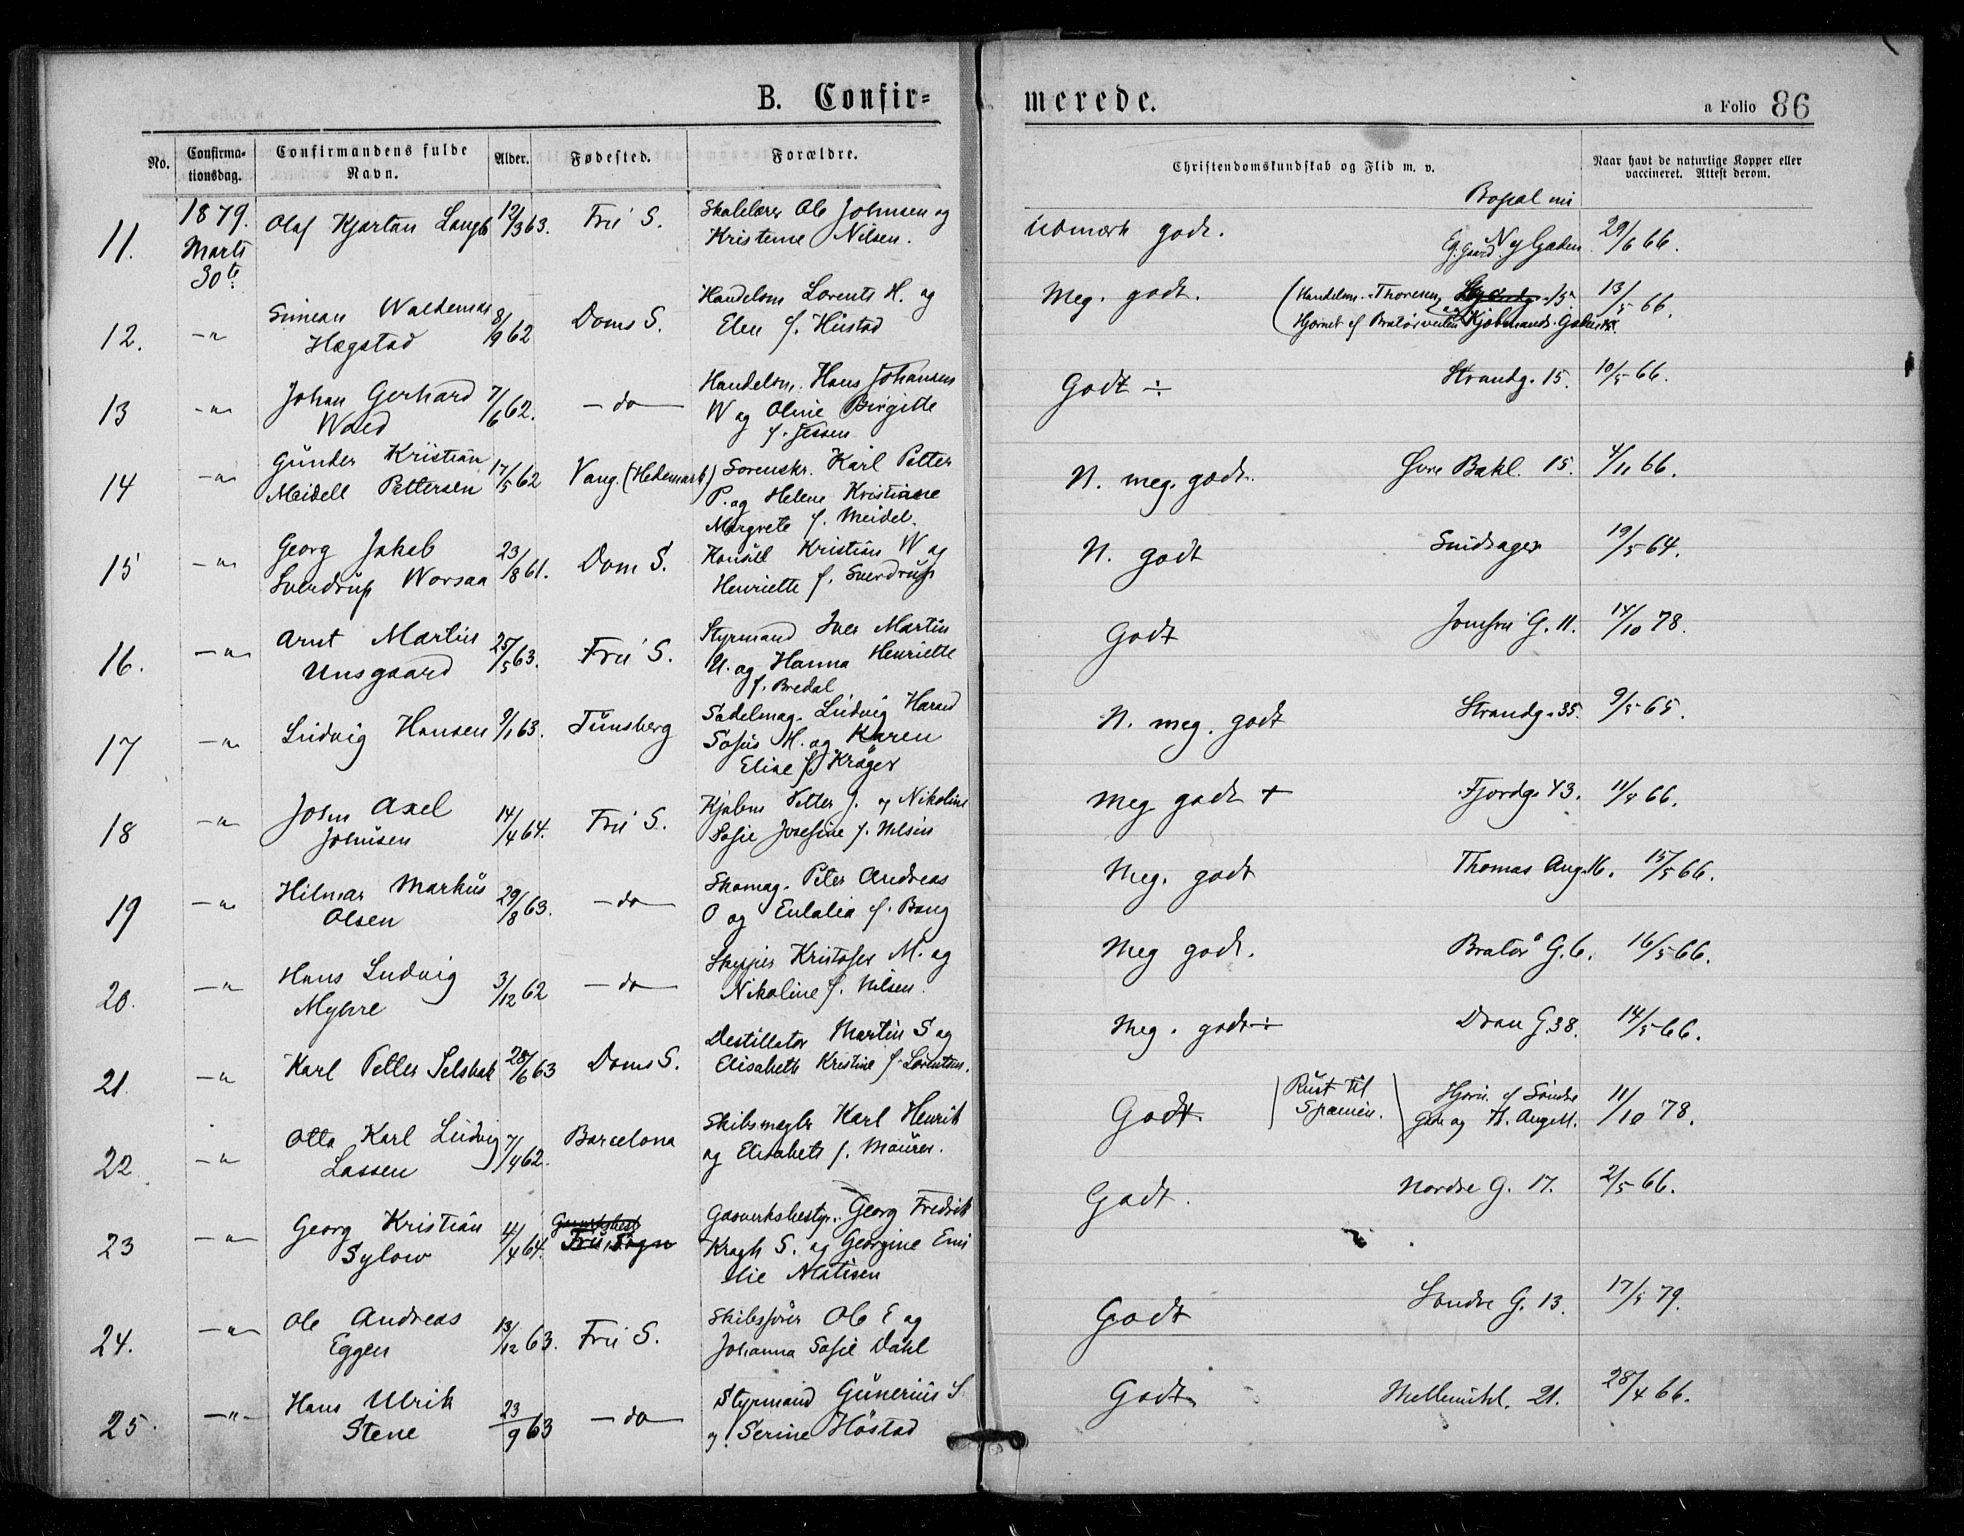 B. Confir=
merede.
a Folio 86
No.
Confirma-
tionsdag.
Confirmandens fulde
Navn.
Alder.
Fødested.
Forældre.
Christendomskundskab og Flid m. v.
Naar havt de naturlige Kopper eller
vaccineret. Attest derom.
1879.
Marts
30te
11. Olaf Kjartan 12/3 63. Frü S. Skolelærer Ole Johnsen og
Kristine Nilsen.
Udmærk godt. Ny Gaden 29/6 66.
12. -"- Simean Waldemar
Hægstad 8/9 62 Doms S. Handelsm Lorents H. og
Elen f. Hustad
Meg. godt. (Handelsm. Thoresen 15
Hjørnet af Bratørveiten og Kjøbmands Gaden 13/5 66.
13 -"- Johan Gerhard
Wold 7/6 62. -do- Handelsm. Hans Johansen
W og Oline Birgitte
f. Jessen
Godt ÷ Strandg. 15. 10/5 66.
14 -"- Günder Kristian
Meidell Pettersen 17/5 62 Vang (Hedemark) Sorenskr. Karl Petter
P. og Helene Kristiane
Margrete f. Meidel.
N. meg. godt. Øvre Bakl. 15. 4/11 66.
15 -"- Georg Jakob
Sverdrup Worsaa 23/8 61. Dom S. Konsül Kristian W og
Henriette f. Sverdrup
N. godt 19/5 64.
16. -"- Arnt Martin
Unsgaard 25/5 63. Frü S. Styrmand Iver Martin
U. og Hanna Henriette
f. Bredal
Godt Jomfru G. 11. 14/10 78.
17 -"- Lüdvig Hansen 9/1 63. Tünsberg Sadelmag. Lüdvig
Sofus H. og Karen
Elise f. Krøger
N. meg. godt Strandg. 35. 9/5 65.
18 -"- John Axel
Johnsen 14/4 64. Frü S. Petter J. og Nikoline
Sofie Josefine f. Nilsen
Meg godt + Fjordg. 43. 11/5 66.
19 -"- Hilmar Markus
Olsen 29/8 63. -do- Skomag. Peter Andreas
O og Eulalia f. Bang
Meg. godt Thomas Ang. 16. 15/5 66.
20. -"- Hans Ludvig
Myhre 3/12 62 -do- Skipper Kristofer M. og
Nikoline f. Nilsen.
Meg godt. Bratør G. 6. 16/5 66.
21. -"- Karl Petter Selsbak 28/6 63 Doms S. Destillatør Martin S og
Elisabeth Kristine f. Lorentsen.
Meg. godt ÷ Dron G. 38. 14/5 66.
22 -"- Otto Karl Ludvig
Lassen 7/4 62. Barcelona Skibsmægler Karl Henrik
og Elisabeth f. Maurer.
Godt. (Rüst til
Spanien.) Hjørn. af Søndre
Gade og Th. Angell. 11/10 78.
23 -"- Georg Kristian
Sylow 4/4 64. Frü Sogn Gasverksbestyr. Georg Fredrik
Kragh S. og Georgine Emi
lie Matisen
Godt. Nordre G. 17. 2/5 66.
24. -"- Ole Andreas
Eggen 13/12 63. Frü S. Skibsfører Ole E og
Johanna Sofie Dahl
Godt Søndre G. 13. 17/5 79.
25 -"- Hans Ulrik
Stene 23/9 63 -do- Styrmand Günerius S
og Serine Höstad
Godt Mellemihl. 21. 28/4 66.